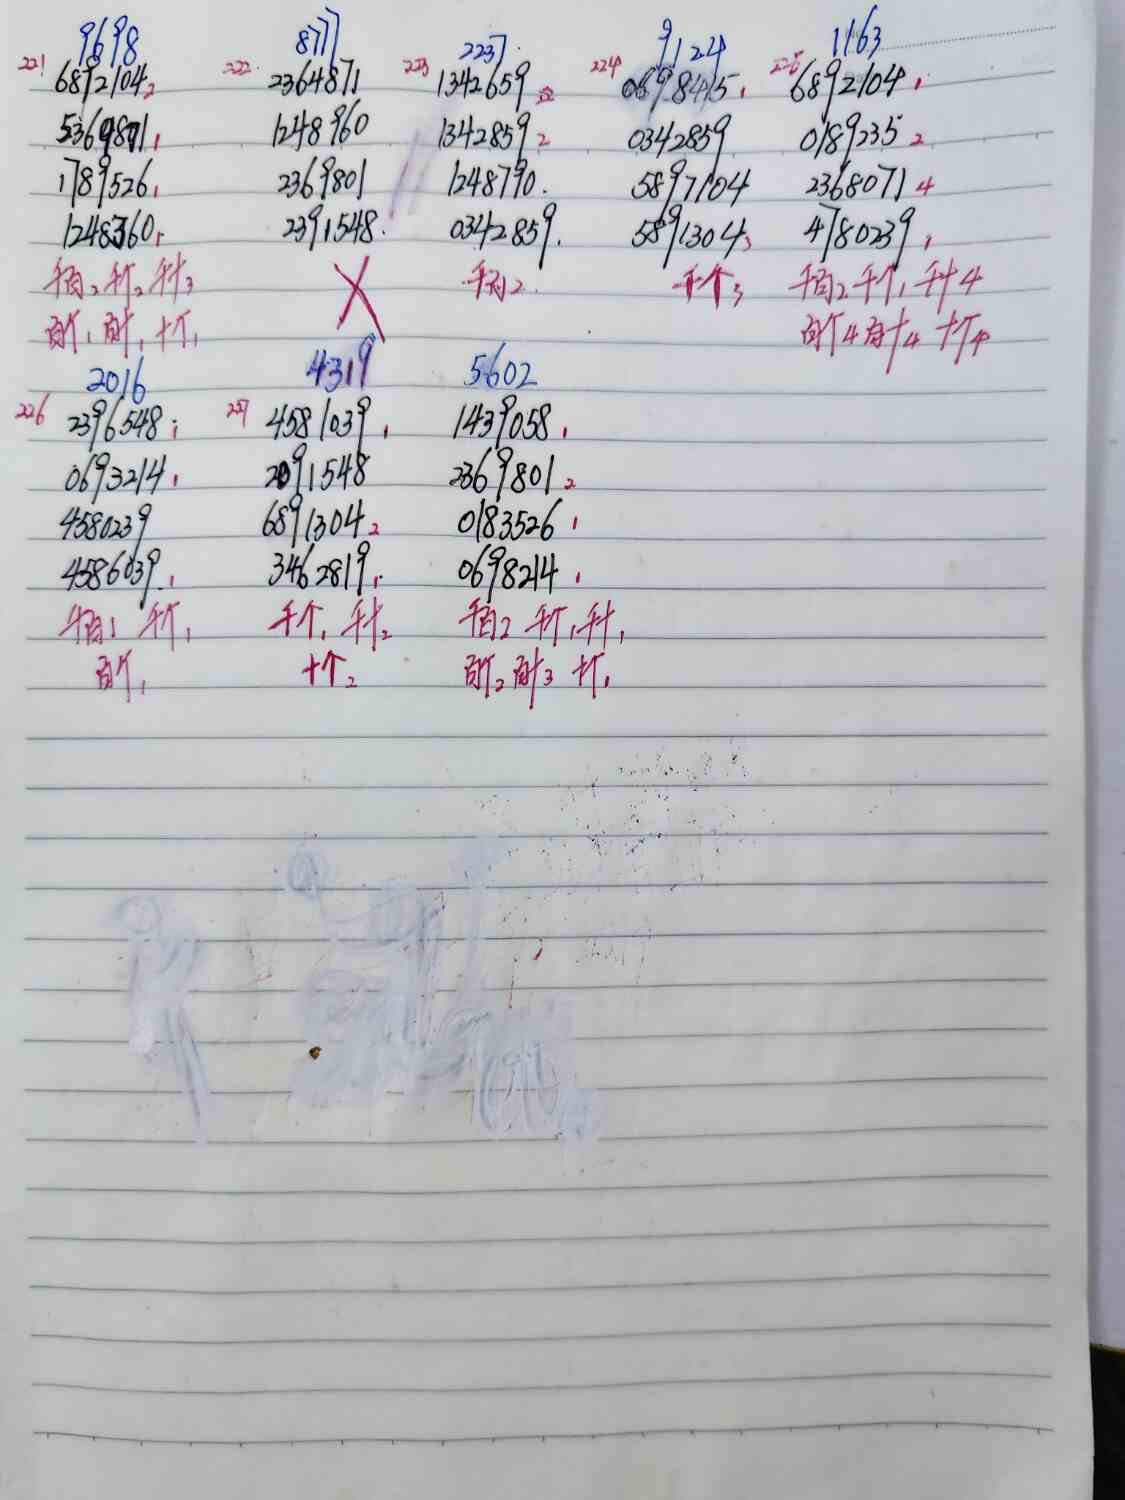 9698 8777 2237. 9124 1163
221 6892104 2 222. 2364871 223 1342659 224 0698415 1 225 6892104 1
5369871 1 1248960 1342859 2 0342859 0189235 2
1789526 1 2369801 1248790. 5897104 2368071 4
1248360 1 2391548. 0342859. 5891304 3 4780239 1
千百2 千个2 千十3 X 千百2. 千个3 千百2 千个1 千十4
百个1 百十1 十个1 百个4 百十4 十个4
2016 4319 5602
226 2396548 1 227 4581039 1 1439058 1
0693214 1 2091548 2369801 2
4580239 6891304 2 0183526 1
4586039. 1 3462819 1 0698214 1
千百1 千个1 千个1 千十2 千百2 千个1 千十1
百个1 十个2 百个2 百十3 十个1